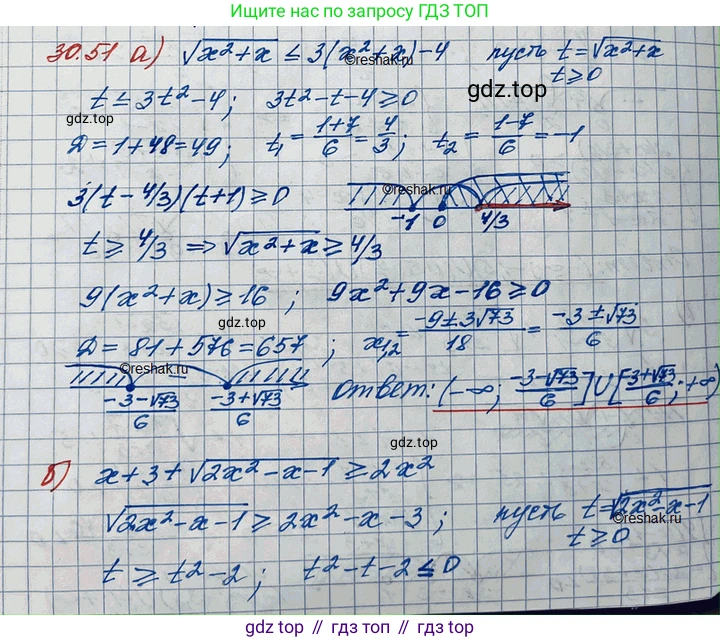 Ищите нас по запросу ГДЗ ТОП
30.51 а) √(x²+x) ≤ 3(x²+x)-4 пусть t=√(x²+x)
©reshak.ru
gdz.top
t≥0
t ≤ 3t²-4; 3t²-t-4≥0
gdz.top
Д=1+48=49; t₁=(1+7)/6=4/3; t₂=(1-7)/6=-1
3(t-4/3)(t+1)≥0
©reshak.ru
-1 0 4/3
t≥4/3 ⇒ √(x²+x)≥4/3
9(x²+x)≥16; 9x²+9x-16≥0
gdz.top
Д=81+576=657; x₁,₂=(-9±3√73)/18=(-3±√73)/6
©reshak.ru
(-3-√73)/6 (-3+√73)/6 ответ: (-∞; (-3-√73)/6]∪[(-3+√73)/6; +∞)
gdz.top
б) x+3+√(2x²-x-1)≥2x²
√(2x²-x-1)≥2x²-x-3; пусть t=√(2x²-x-1)
©reshak.ru
t≥0
t≥t²-2; t²-t-2≤0
gdz.top // гдз топ // gdz.top